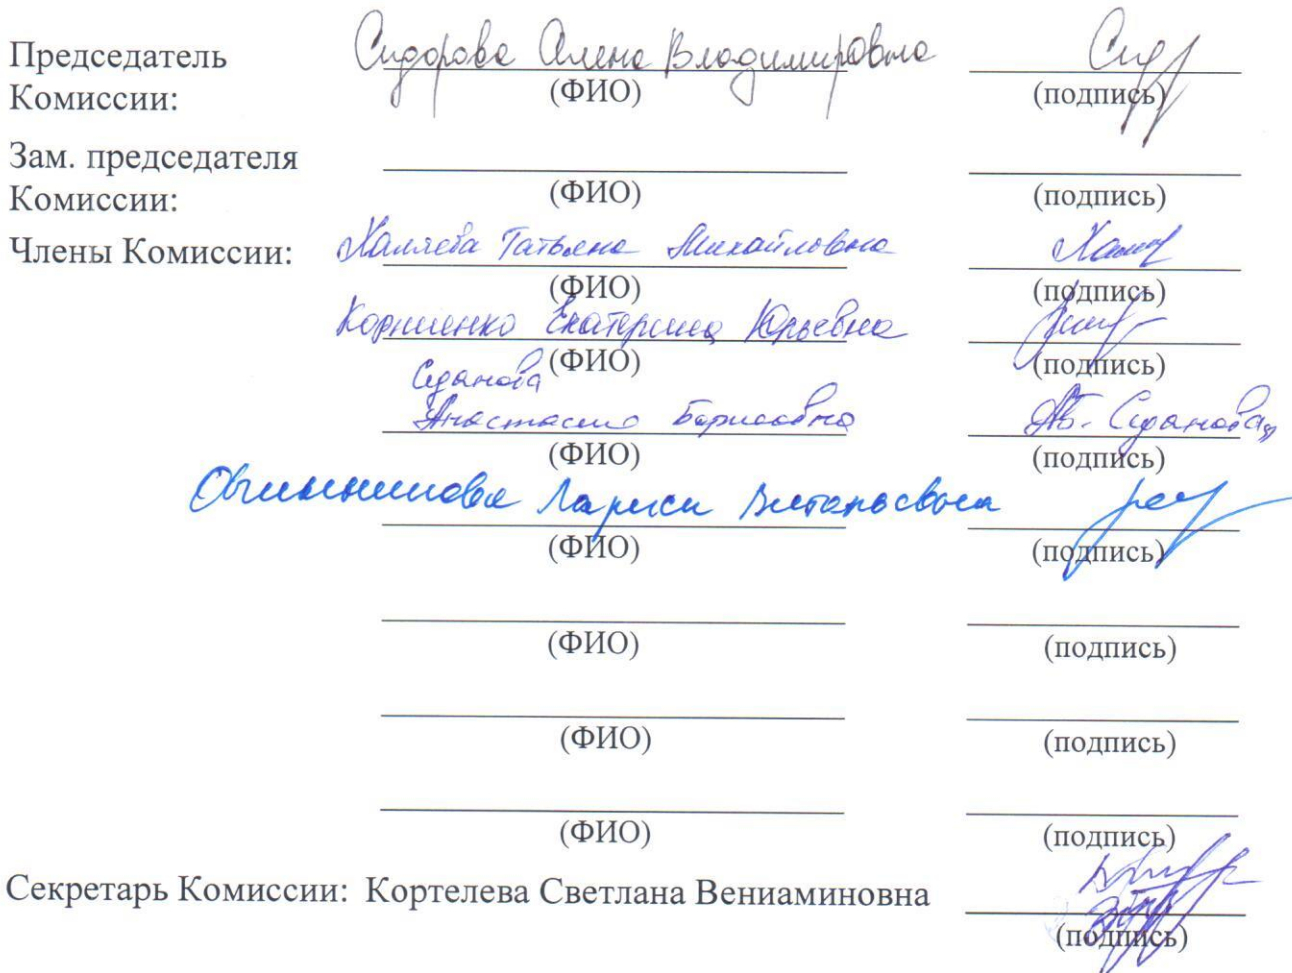 Председатель Сидорова Алена Владимировна Сид
Комиссии: (ФИО) (подпись)
Зам. председателя
Комиссии: (ФИО) (подпись)
Члены Комиссии: Халяева Татьяна Михайловна
(ФИО) (подпись)
Корниенко Екатерина Юрьевна
(ФИО) (подпись)
Седанова
Анастасия Борисовна АБ. Седанова
(ФИО) (подпись)
Лариса Витальевна
(ФИО) (подпись)
(ФИО) (подпись)
(ФИО) (подпись)
(ФИО) (подпись)
Секретарь Комиссии: Кортелева Светлана Вениаминовна
(подпись)